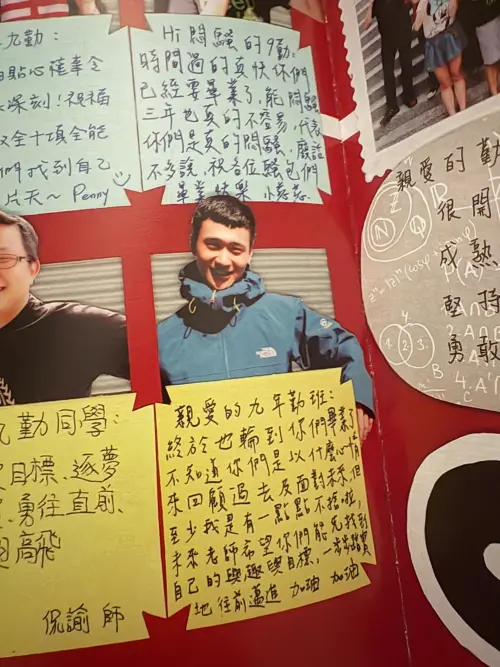 九勤:
貼心
深刻!祝福
全十項全能
們找到自己
片天~ Penny
Hi 悶騷的9勤:
時間過的真快你們
已經要畢業了,能悶騷
三年也真的不容易,代表
你們是真的悶騷,廢話
不多說,祝各位騷包們
畢業快樂
親愛的勤
很開
成熟
堅持
勇敢
Z
N
Q
勤同學:
目標、逐夢
勇往直前、
高飛
侃諭 師
親愛的九年勤班:
終於也輪到你們畢業了
不知道你們是以什麼心情
來回顧過去及面對未來,但
至少我是有一點點不捨啦,
未來老師希望你們能先找到
自己的興趣與目標,一步步踏實
地往前邁進 加油 加油
THE NORTH FACE